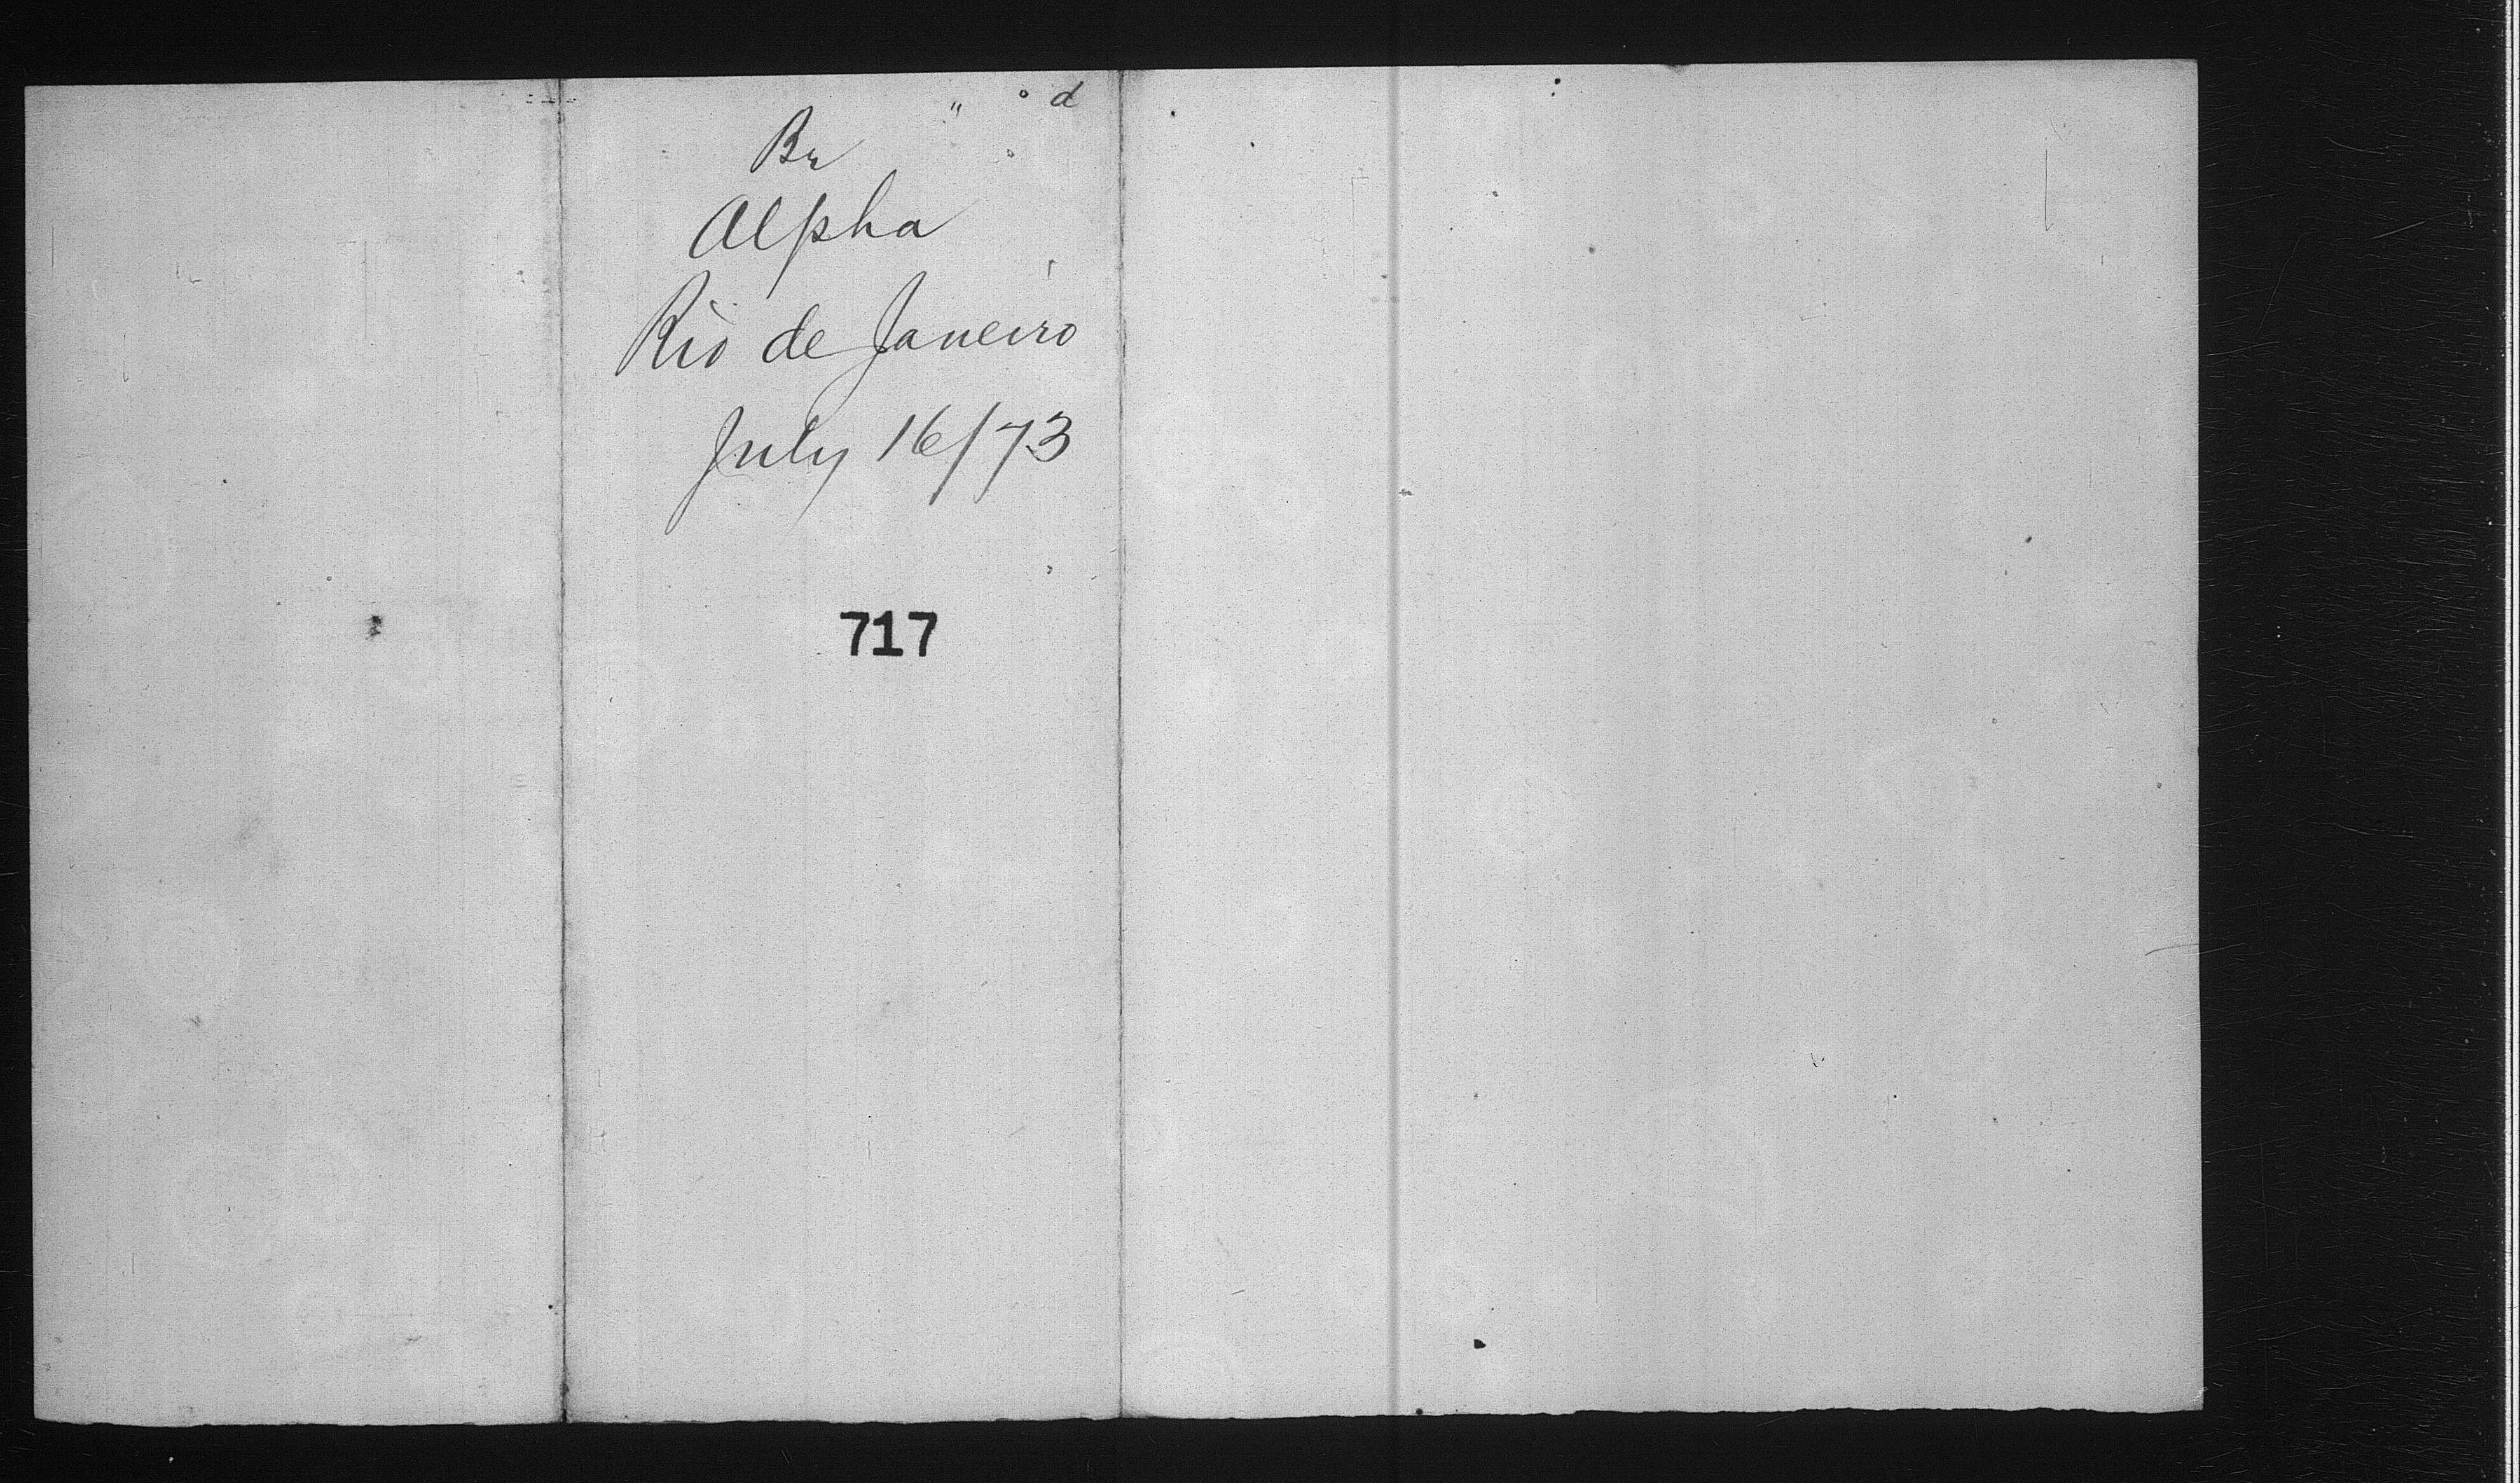 Br
Alpha
Rio de Janeiro
July 16/73
717